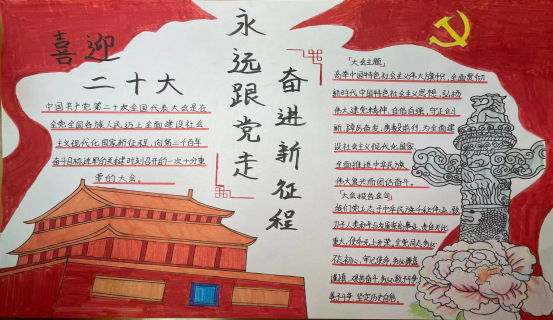 喜迎
二十大
中国共产党第二十次全国代表大会是在
全党全国各族人民迈上全面建设社会
主义现代化国家新征程,向第二个百年
奋斗目标进军的关键时刻召开的一次十分重
要的大会。
永远跟党走
奋进新征程
「大会主题」
高举中国特色社会主义伟大旗帜,全面贯彻
新时代中国特色社会主义思想,弘扬
伟大建党精神,自信自强、守正创
新,踔厉奋发、勇毅前行,为全面建
设社会主义现代化国家
全面推进中华民族
伟大复兴而团结奋斗。
「大会报告金句」
我们党立志于中华民族千秋伟业,致
力于人类和平与发展崇高事业,责任无比
重大,使命无上光荣。全党同志务必
不忘初心、牢记使命,务必谦虚
谨慎、艰苦奋斗,务必敢于斗争
善于斗争,坚定历史自信